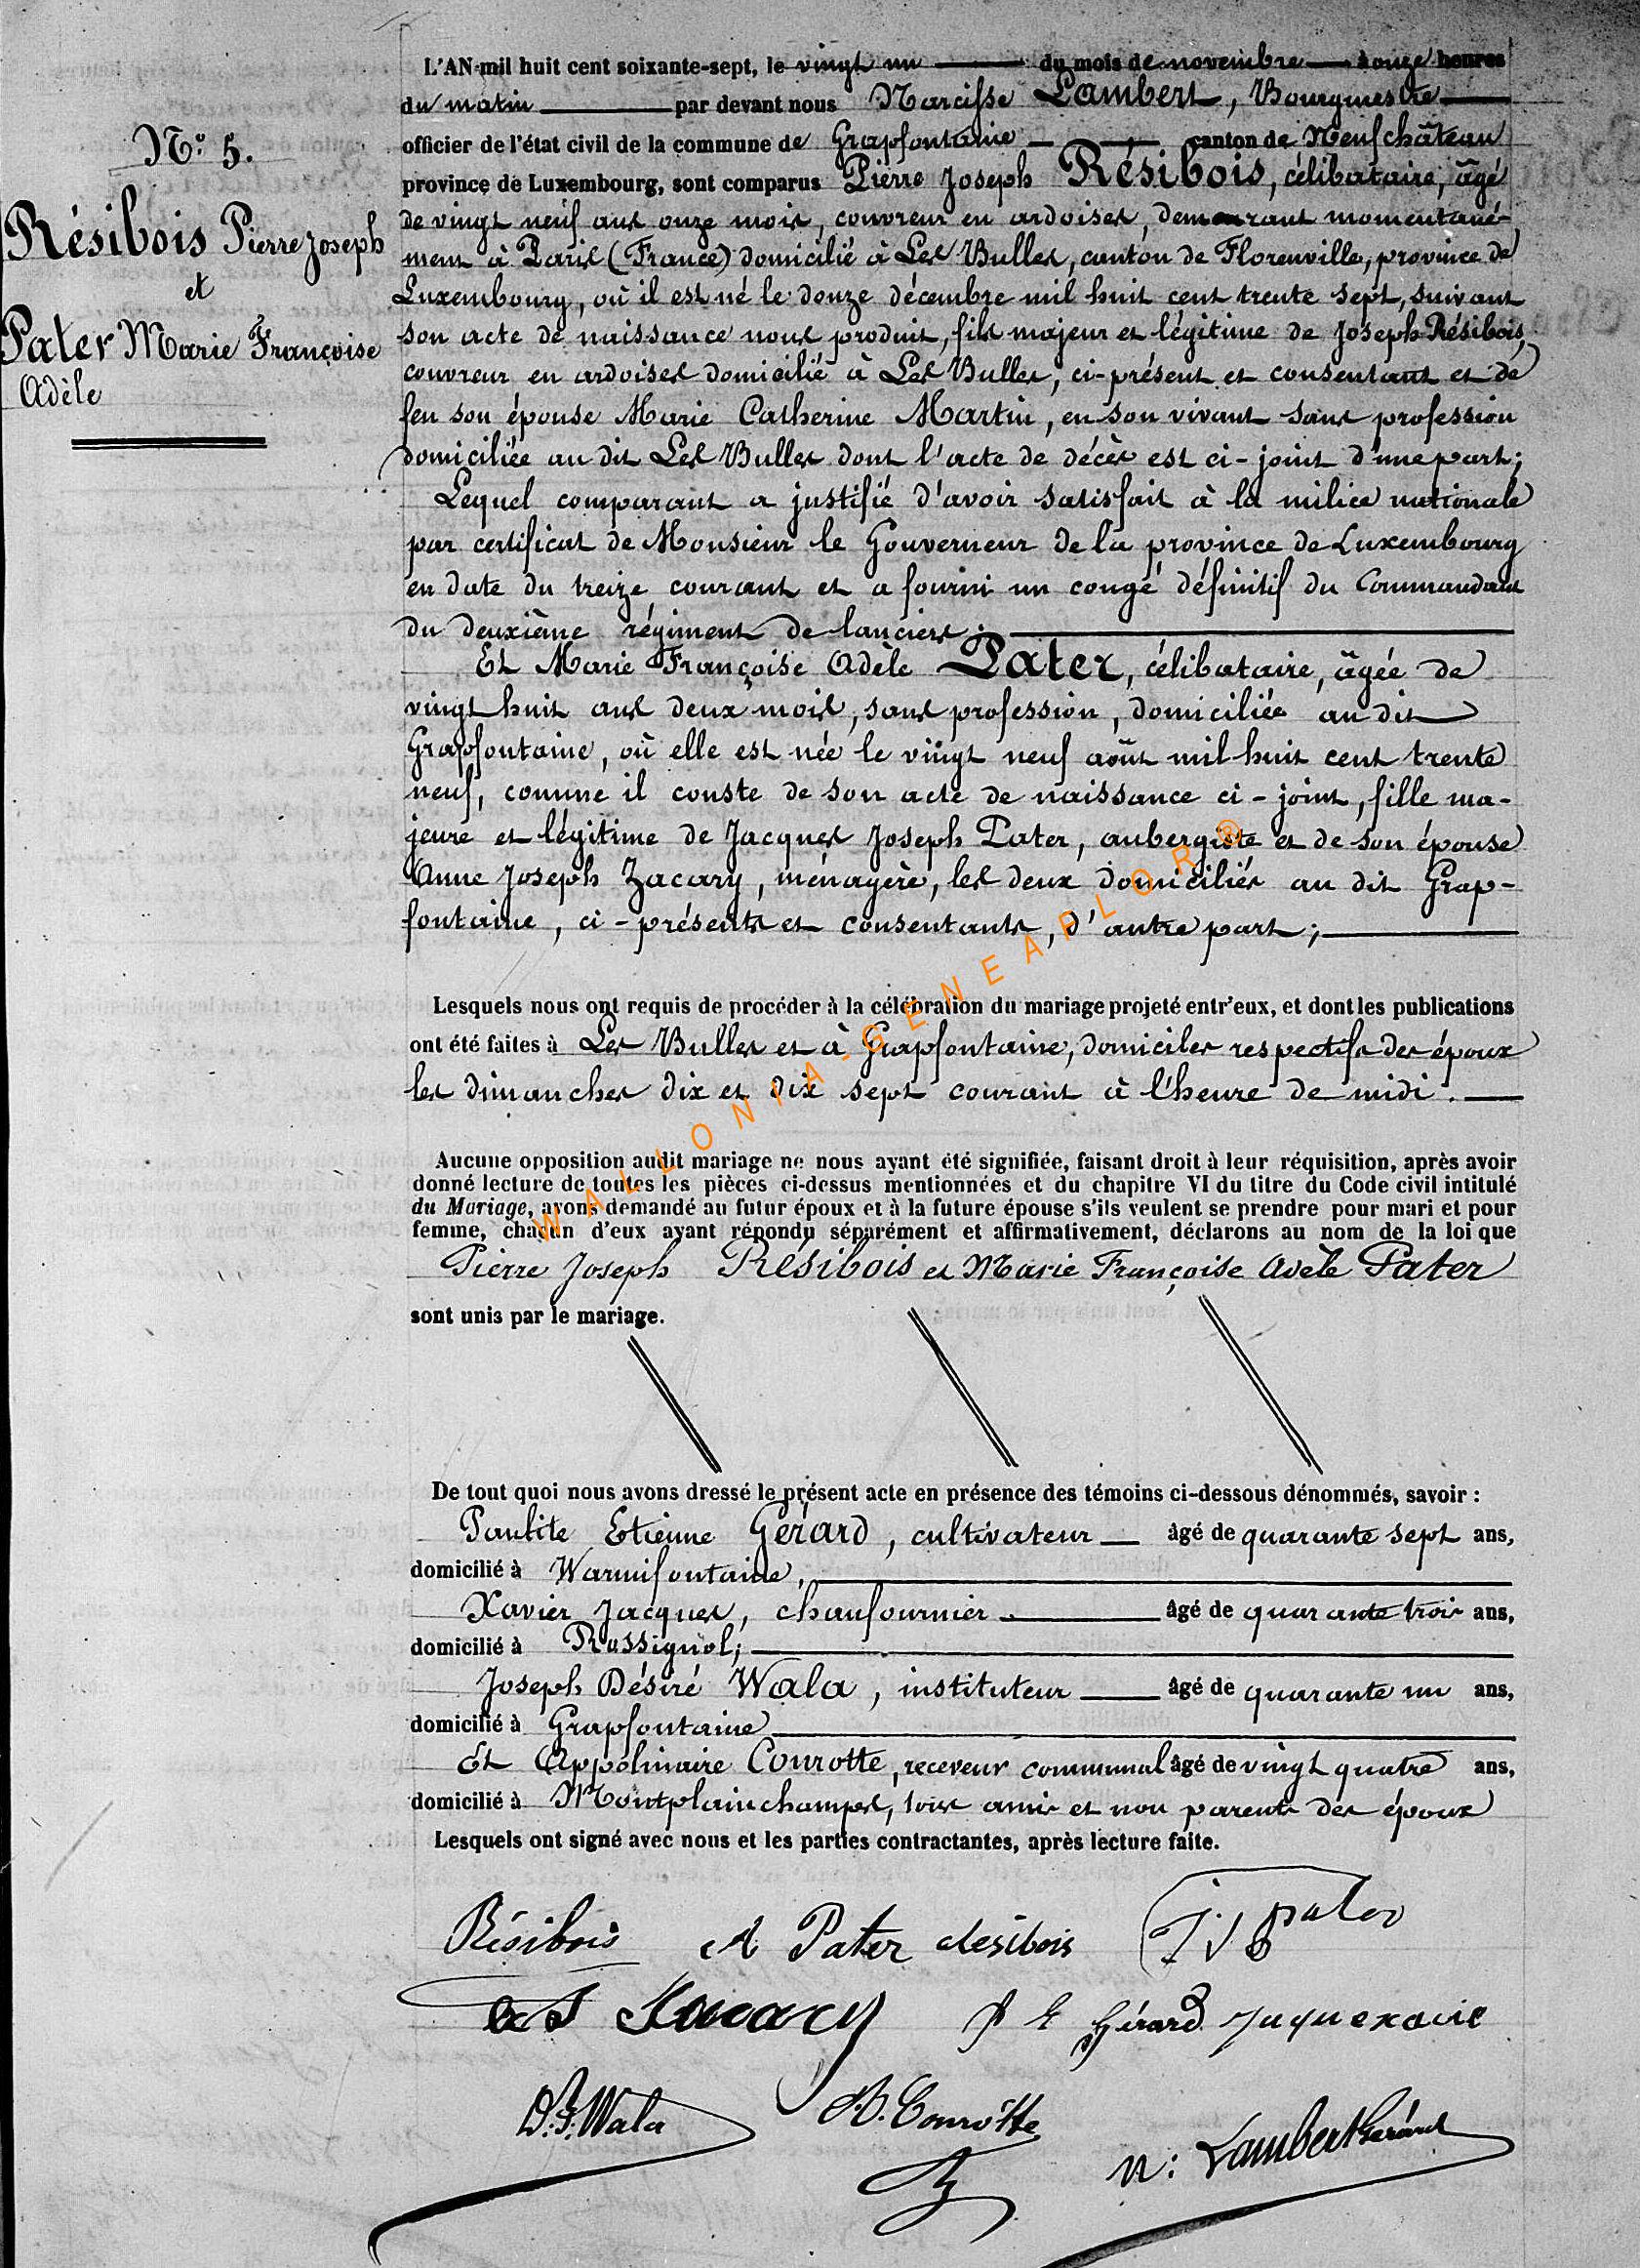 N.o 5.
Résibois Pierre Joseph
et
Pater Marie Françoise
Adèle
L'AN mil huit cent soixante-sept, le vingt un du mois de novembre à onze heures
du matin par devant nous Narcisse Lambert, Bourgmestre
officier de l'état civil de la commune de Grapfontaine canton de Neufchâteau
province de Luxembourg, sont comparus Pierre Joseph Résibois, célibataire, âgé
de vingt neuf ans onze mois, couvreur en ardoises, demeurant momentané-
ment à Paris (France) domicilié à Les Bulles, canton de Florenville, province de
Luxembourg, où il est né le douze décembre mil huit cent trente sept, suivant
son acte de naissance nous produit, fils majeur et légitime de Joseph Résibois,
couvreur en ardoises domicilié à Les Bulles, ci-présent et consentant et de
feu son épouse Marie Catherine Martin, en son vivant sans profession
domiciliée au dit Les Bulles dont l'acte de décès est ci-joint d'une part;
Lequel comparant a justifié d'avoir satisfait à la milice nationale
par certificat de Monsieur le Gouverneur de la province de Luxembourg
en date du treize courant et a fourni un congé définitif du Commandant
du deuxième régiment de lanciers;
Et Marie Françoise Adèle Pater, célibataire, âgée de
vingt huit ans deux mois, sans profession, domiciliée au dit
Grapfontaine, où elle est née le vingt neuf août mil huit cent trente
neuf, comme il conste de son acte de naissance ci-joint, fille ma-
jeure et légitime de Jacques Joseph Pater, aubergiste et de son épouse
Anne Joseph Zacary, ménagère, les deux domiciliés au dit Grap-
fontaine, ci-présents et consentants, d'autre part;
Lesquels nous ont requis de procéder à la célébration du mariage projeté entr'eux, et dont les publications
ont été faites à Les Bulles et à Grapfontaine, domiciles respectifs des époux
les dimanches dix et dix sept courant à l'heure de midi.
Aucune opposition audit mariage ne nous ayant été signifiée, faisant droit à leur réquisition, après avoir
donné lecture de toutes les pièces ci-dessus mentionnées et du chapitre VI du titre du Code civil intitulé
du Mariage, avons demandé au futur époux et à la future épouse s'ils veulent se prendre pour mari et pour
femme, chacun d'eux ayant répondu séparément et affirmativement, déclarons au nom de la loi que
Pierre Joseph Résibois et Marie Françoise Adèle Pater
sont unis par le mariage.
De tout quoi nous avons dressé le présent acte en présence des témoins ci-dessous dénommés, savoir :
Etienne Gérard, cultivateur âgé de quarante sept ans,
domicilié à Warmifontaine,
Xavier Jacques, chaufournier âgé de quarante trois ans,
domicilié à Rossignol;
Joseph Désiré Wala, instituteur âgé de quarante un ans,
domicilié à Grapfontaine
Et Appolinaire Courotte, receveur communal âgé de vingt quatre ans,
domicilié à Montplainchamps, tous amis et non parents des époux
Lesquels ont signé avec nous et les parties contractantes, après lecture faite.
Résibois A Pater Résibois J J Pater
Gérard
D.J. Wala A. Courotte N: Lambert Gérard
WALLONIA-GENEAPLOR®